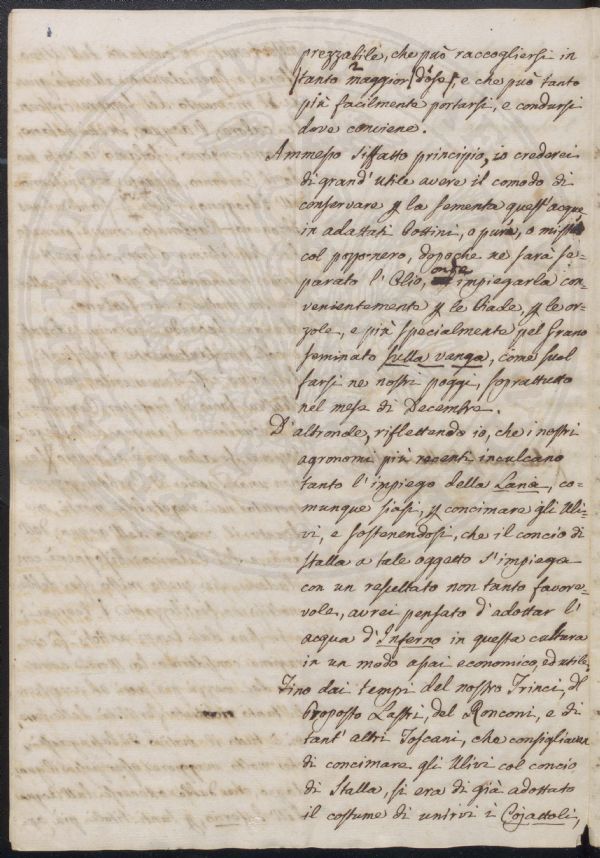 prezzabile, che può raccogliersi in
tanto maggior dose, e che può tanto
più facilmente portarsi, e condursi
dove conviene.
Ammesso siffatto principio, io crederei
di grand' utile avere il comodo di
conservare p la sementa quest' acque
in adattati bottini, o pure, o miste
col pozzonero, dopoche ne sarà se=
parato l' Olio, onde impiegarla con=
venientemente p le Biade, p le or=
zole, e più specialmente pel Grano
seminato sulla vanga, come suol
farsi ne nostri poggi, soprattutto
nel mese di Decembre.
D' altronde, riflettendo io, che i nostri
agronomi più recenti inculcano
tanto l' impiego della Lana, co=
munque siasi, p concimare gli Uli=
vi, e sostenendosi, che il concio di
stalla a tale oggetto s' impiega
con un resultato non tanto favore=
vole, avrei pensato d' adottar l'
acqua d' Inferno in questa cultura
in un modo assai economico ed utile,
Fino dai tempi del nostro Trinci, del
Proposto Lastri, del Ronconi, e di
tant' altri Toscani, che consigliavan
di concimare gli Ulivi col concio
di stalla, si era di già adottato
il costume di unirvi i Cojattoli,